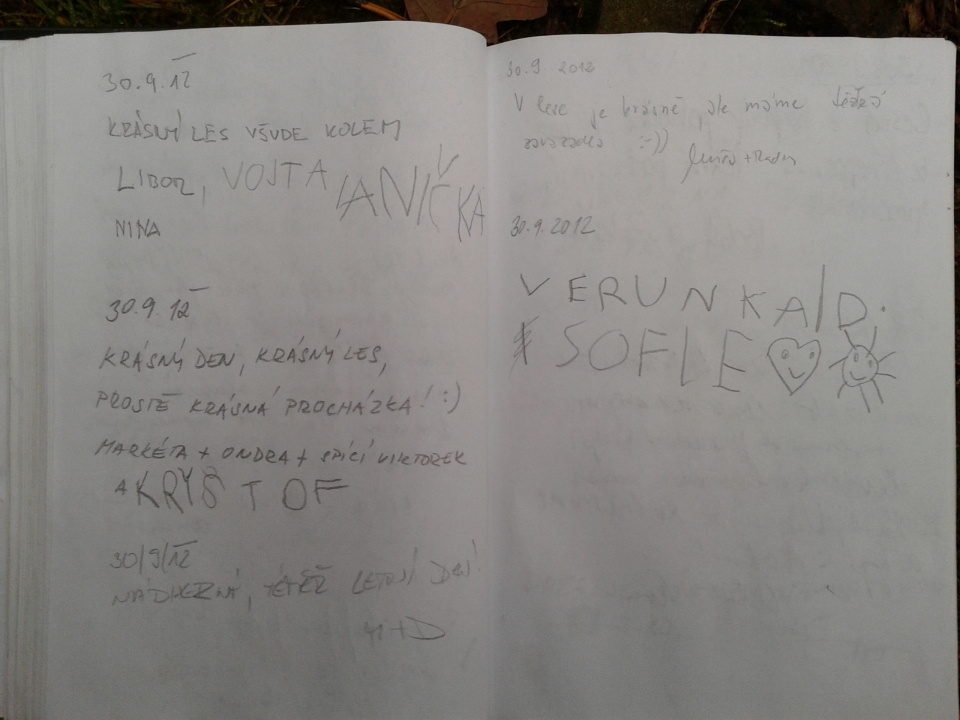 30.9.12
KRÁSNÝ LES VŠUDE KOLEM
LIBOR, VOJTA, ANIČKA
NINA
30.9.12
KRÁSNÝ DEN, KRÁSNÝ LES,
PROSTĚ KRÁSNÁ PROCHÁZKA! :)
MARKÉTA + ONDRA + SPÍCÍ VIKTOREK
A KRYŠTOF
30/9/12
NÁDHERNÝ, TÉMĚŘ LETNÍ DEN!
M+D
30.9. 2012
V lese je krásně, ale máme těžká
zavazadla :-))
30.9.2012
VERUNKA/D.
SOFIE